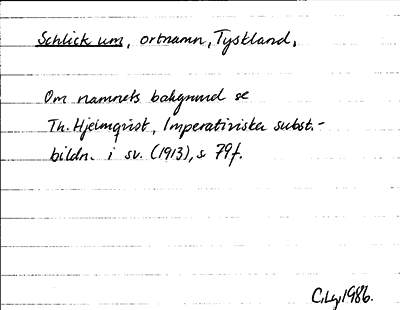 Schlick um, ortnamn, Tyskland,
Om namnets bakgrund se
Th. Hjelmqvist, Imperativiska subst.-
bildn. i sv. (1913), s 79f.
C.Ly, 1986.